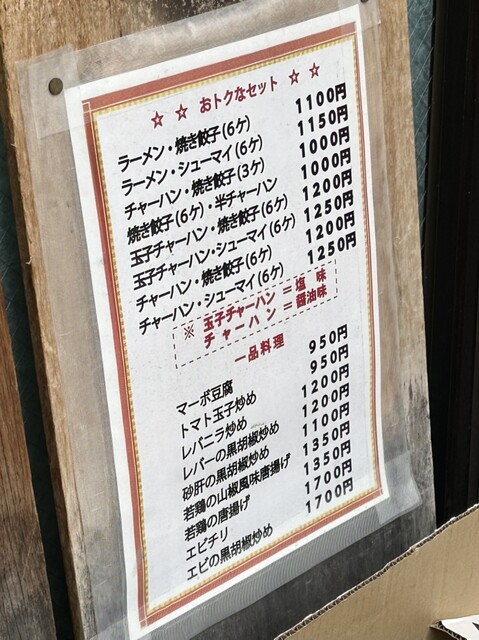 ☆ ☆ おトクなセット ☆ ☆
ラーメン・焼き餃子(6ケ) 1100円
ラーメン・シューマイ(6ケ) 1150円
チャーハン・焼き餃子(3ケ) 1000円
焼き餃子(6ケ)・半チャーハン 1000円
玉子チャーハン・焼き餃子(6ケ) 1200円
玉子チャーハン・シューマイ(6ケ) 1250円
チャーハン・焼き餃子(6ケ) 1200円
チャーハン・シューマイ(6ケ) 1250円
※ 玉子チャーハン = 塩 味
チャーハン = 醤油味
一品料理
マーボ豆腐 950円
トマト玉子炒め 950円
レバニラ炒め 1200円
レバーの黒胡椒炒め 1200円
砂肝の黒胡椒炒め 1100円
若鶏の山椒風味唐揚げ 1350円
若鶏の唐揚げ 1350円
エビチリ 1700円
エビの黒胡椒炒め 1700円